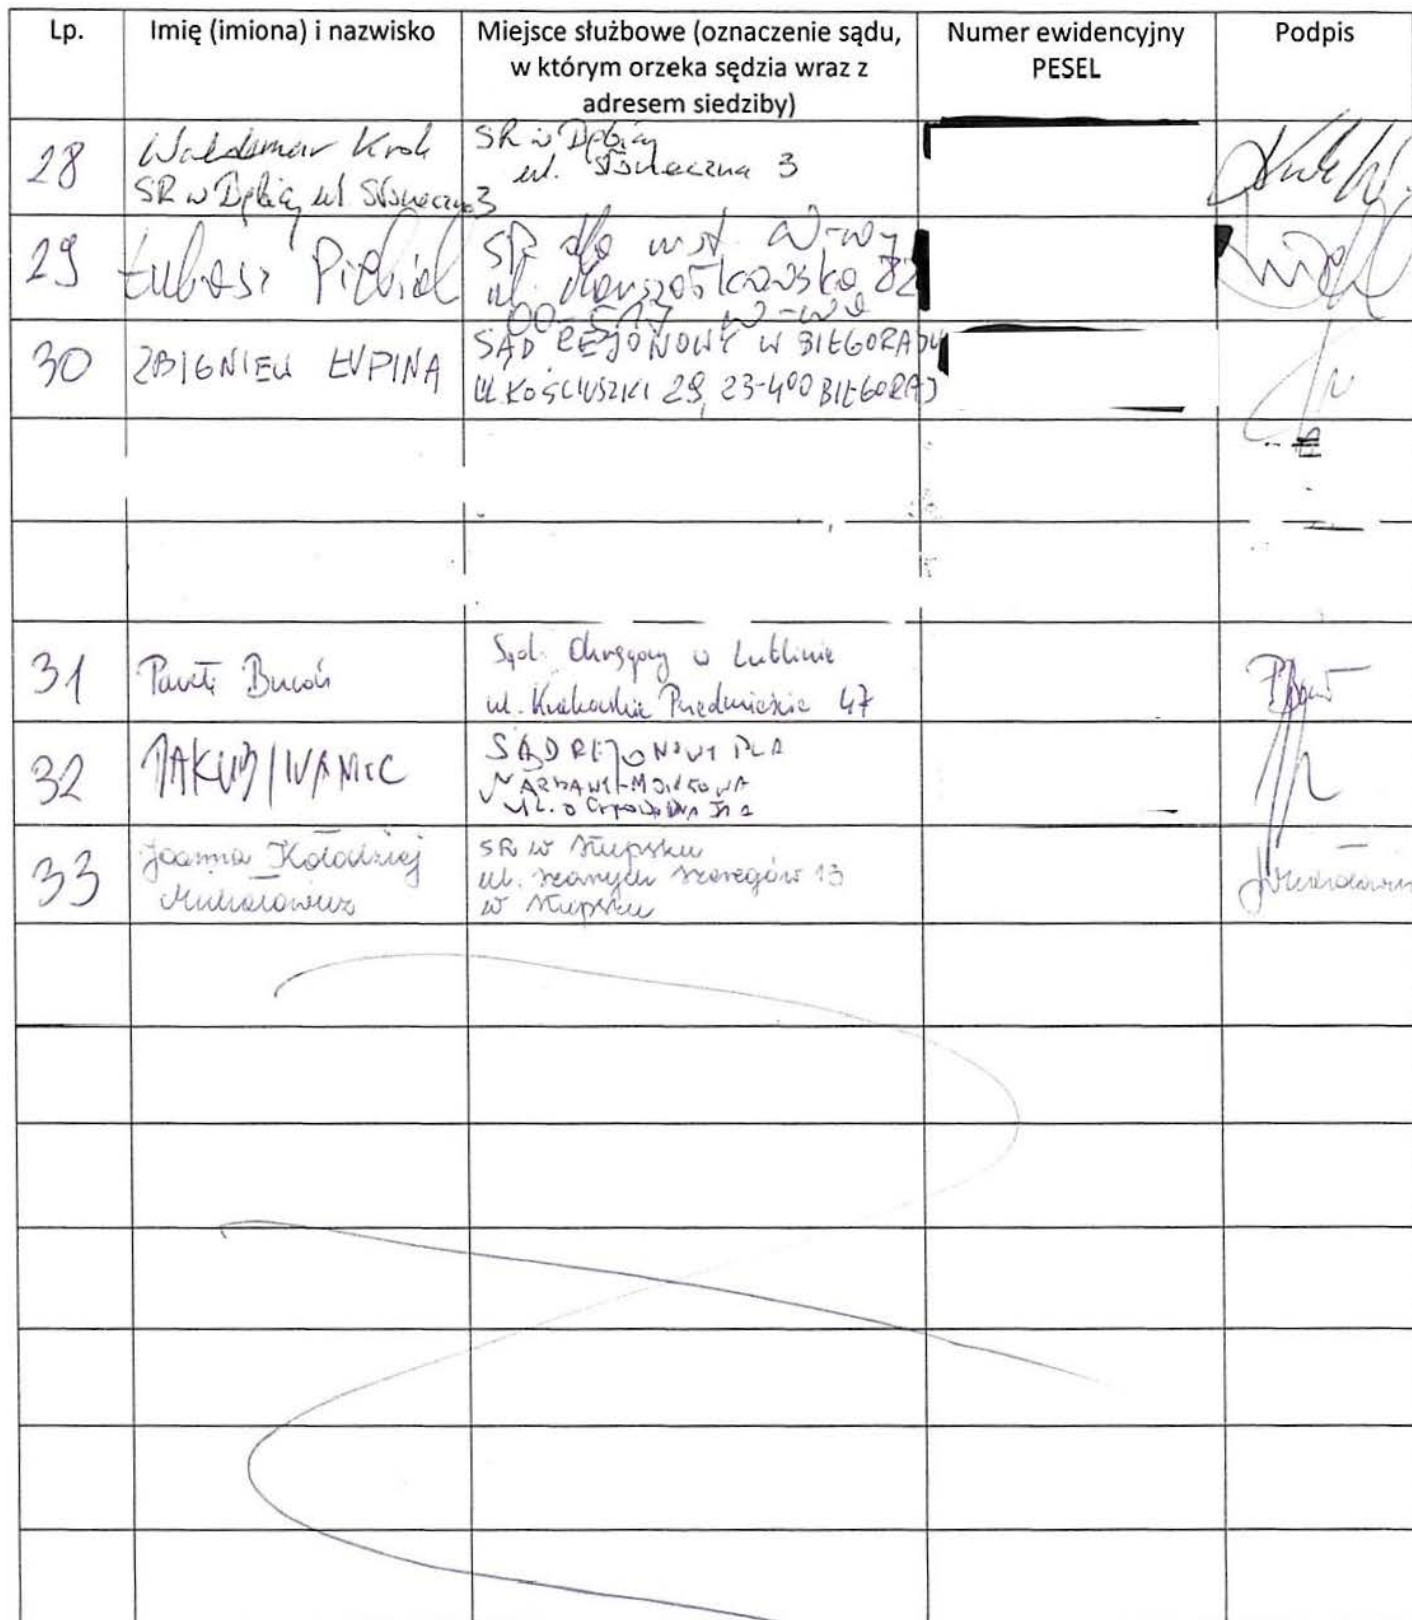 Lp.
Imię (imiona) i nazwisko
Miejsce służbowe (oznaczenie sądu,
w którym orzeka sędzia wraz z
adresem siedziby)
Numer ewidencyjny
PESEL
Podpis
28
Waldemar Krok
SR w Dębicy ul. Słoneczna 3
SR w Dębicy
ul. Słoneczna 3
29
Łukasz Piebiak
SR dla m.st. W-wy
ul. Marszałkowska 82
00-517 W-wa
30
ZBIGNIEW ŁUPINA
SĄD REJONOWY W BIŁGORAJU
UL. KOŚCIUSZKI 29, 23-400 BIŁGORAJ
31
Paweł Bucoń
Sąd Okręgowy w Lublinie
ul. Krakowskie Przedmieście 47
32
JAKUB IWANIEC
SĄD REJONOWY DLA
WARSZAWY-MOKOTOWA
UL. OGRODOWA 51A
33
Joanna Kołodziej
Michałowicz
SR w Słupsku
ul. Szarych Szeregów 13
w Słupsku